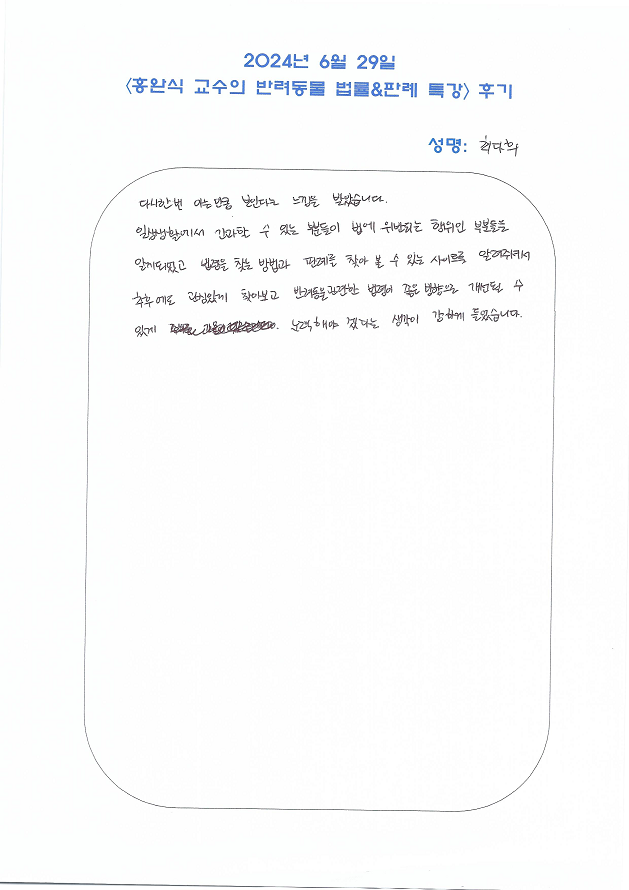 2024년 6월 29일
<홍완식 교수의 반려동물 법률&판례 특강> 후기
성명: 최다희
다시한번 아는만큼 보인다는 느낌을 받았습니다.
일상생활에서 간과할 수 있는 부분들이 법에 위반되는 행위인 부분들을
알게되었고 법령을 찾는 방법과 판례를 찾아 볼 수 있는 사이트를 알려주셔서
추후에도 관심있게 찾아보고 반려동물관련한 법령이 좋은 방향으로 개선될 수
있게 노력해야 겠다는 생각이 강하게 들었습니다.